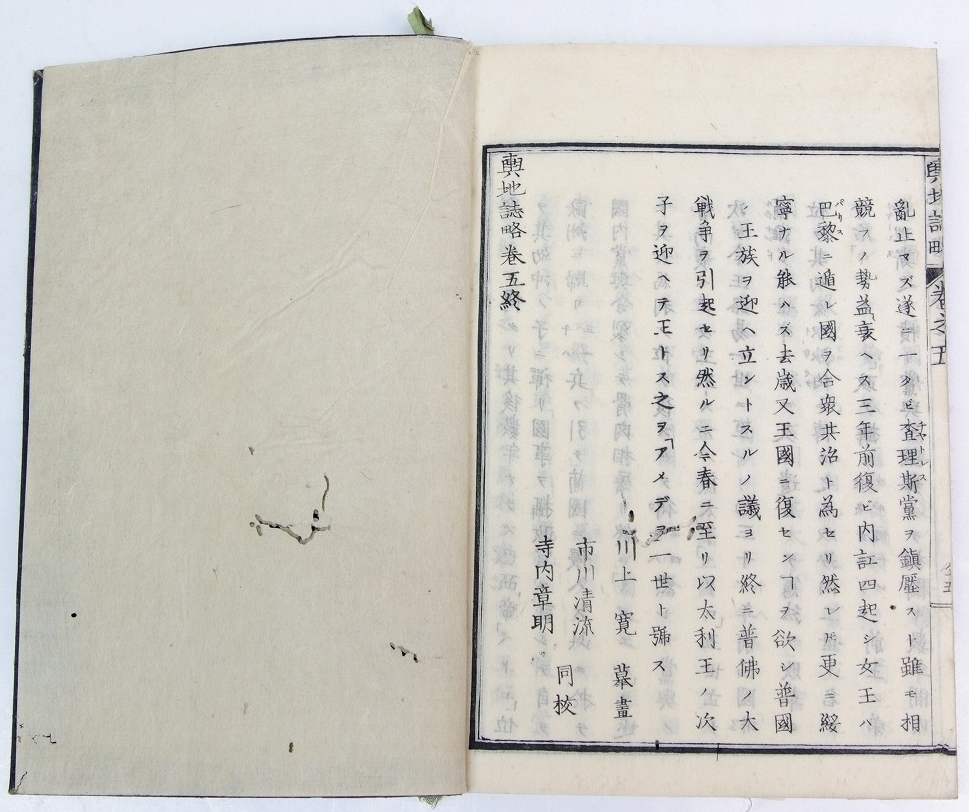 輿地誌略 卷之五
亂止マズ遂ニ一タビ査理斯黨ヲ鎭壓スト雖モ相
チヤトレス
競フノ勢益衰ヘス三年前復ヒ内訌四起シ女王ハ
巴黎ニ遁レ國ヲ合衆共治ト為セリ然レ𪜈更ニ綏
パリス
寧ナル能ハズ去歳又王國ニ復センヿヲ欲シ普國
ノ王族ヲ迎ヘ立ントスルノ議ヨリ終ニ普佛ノ大
戰争ヲ引起セリ然ルニ今春ニ至リ以太利王ノ次
子ヲ迎ヘテ王トス之ヲ「アメデヲ一世ト號ス
川上 寛 摹畫
市川清流
寺内章明 同校
輿地誌略卷五終